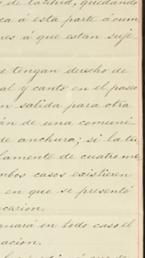 de latitud, quedando
ca á esta parte á cum
res á que están suje
e tengan derecho de
al y canto en el paseo
n salida para otra
án de una comuni
de anchura; si la tu
lamente de cuatro me
mbos casos existieren
en que se presentó
cación.
mará en todo caso el
ación.